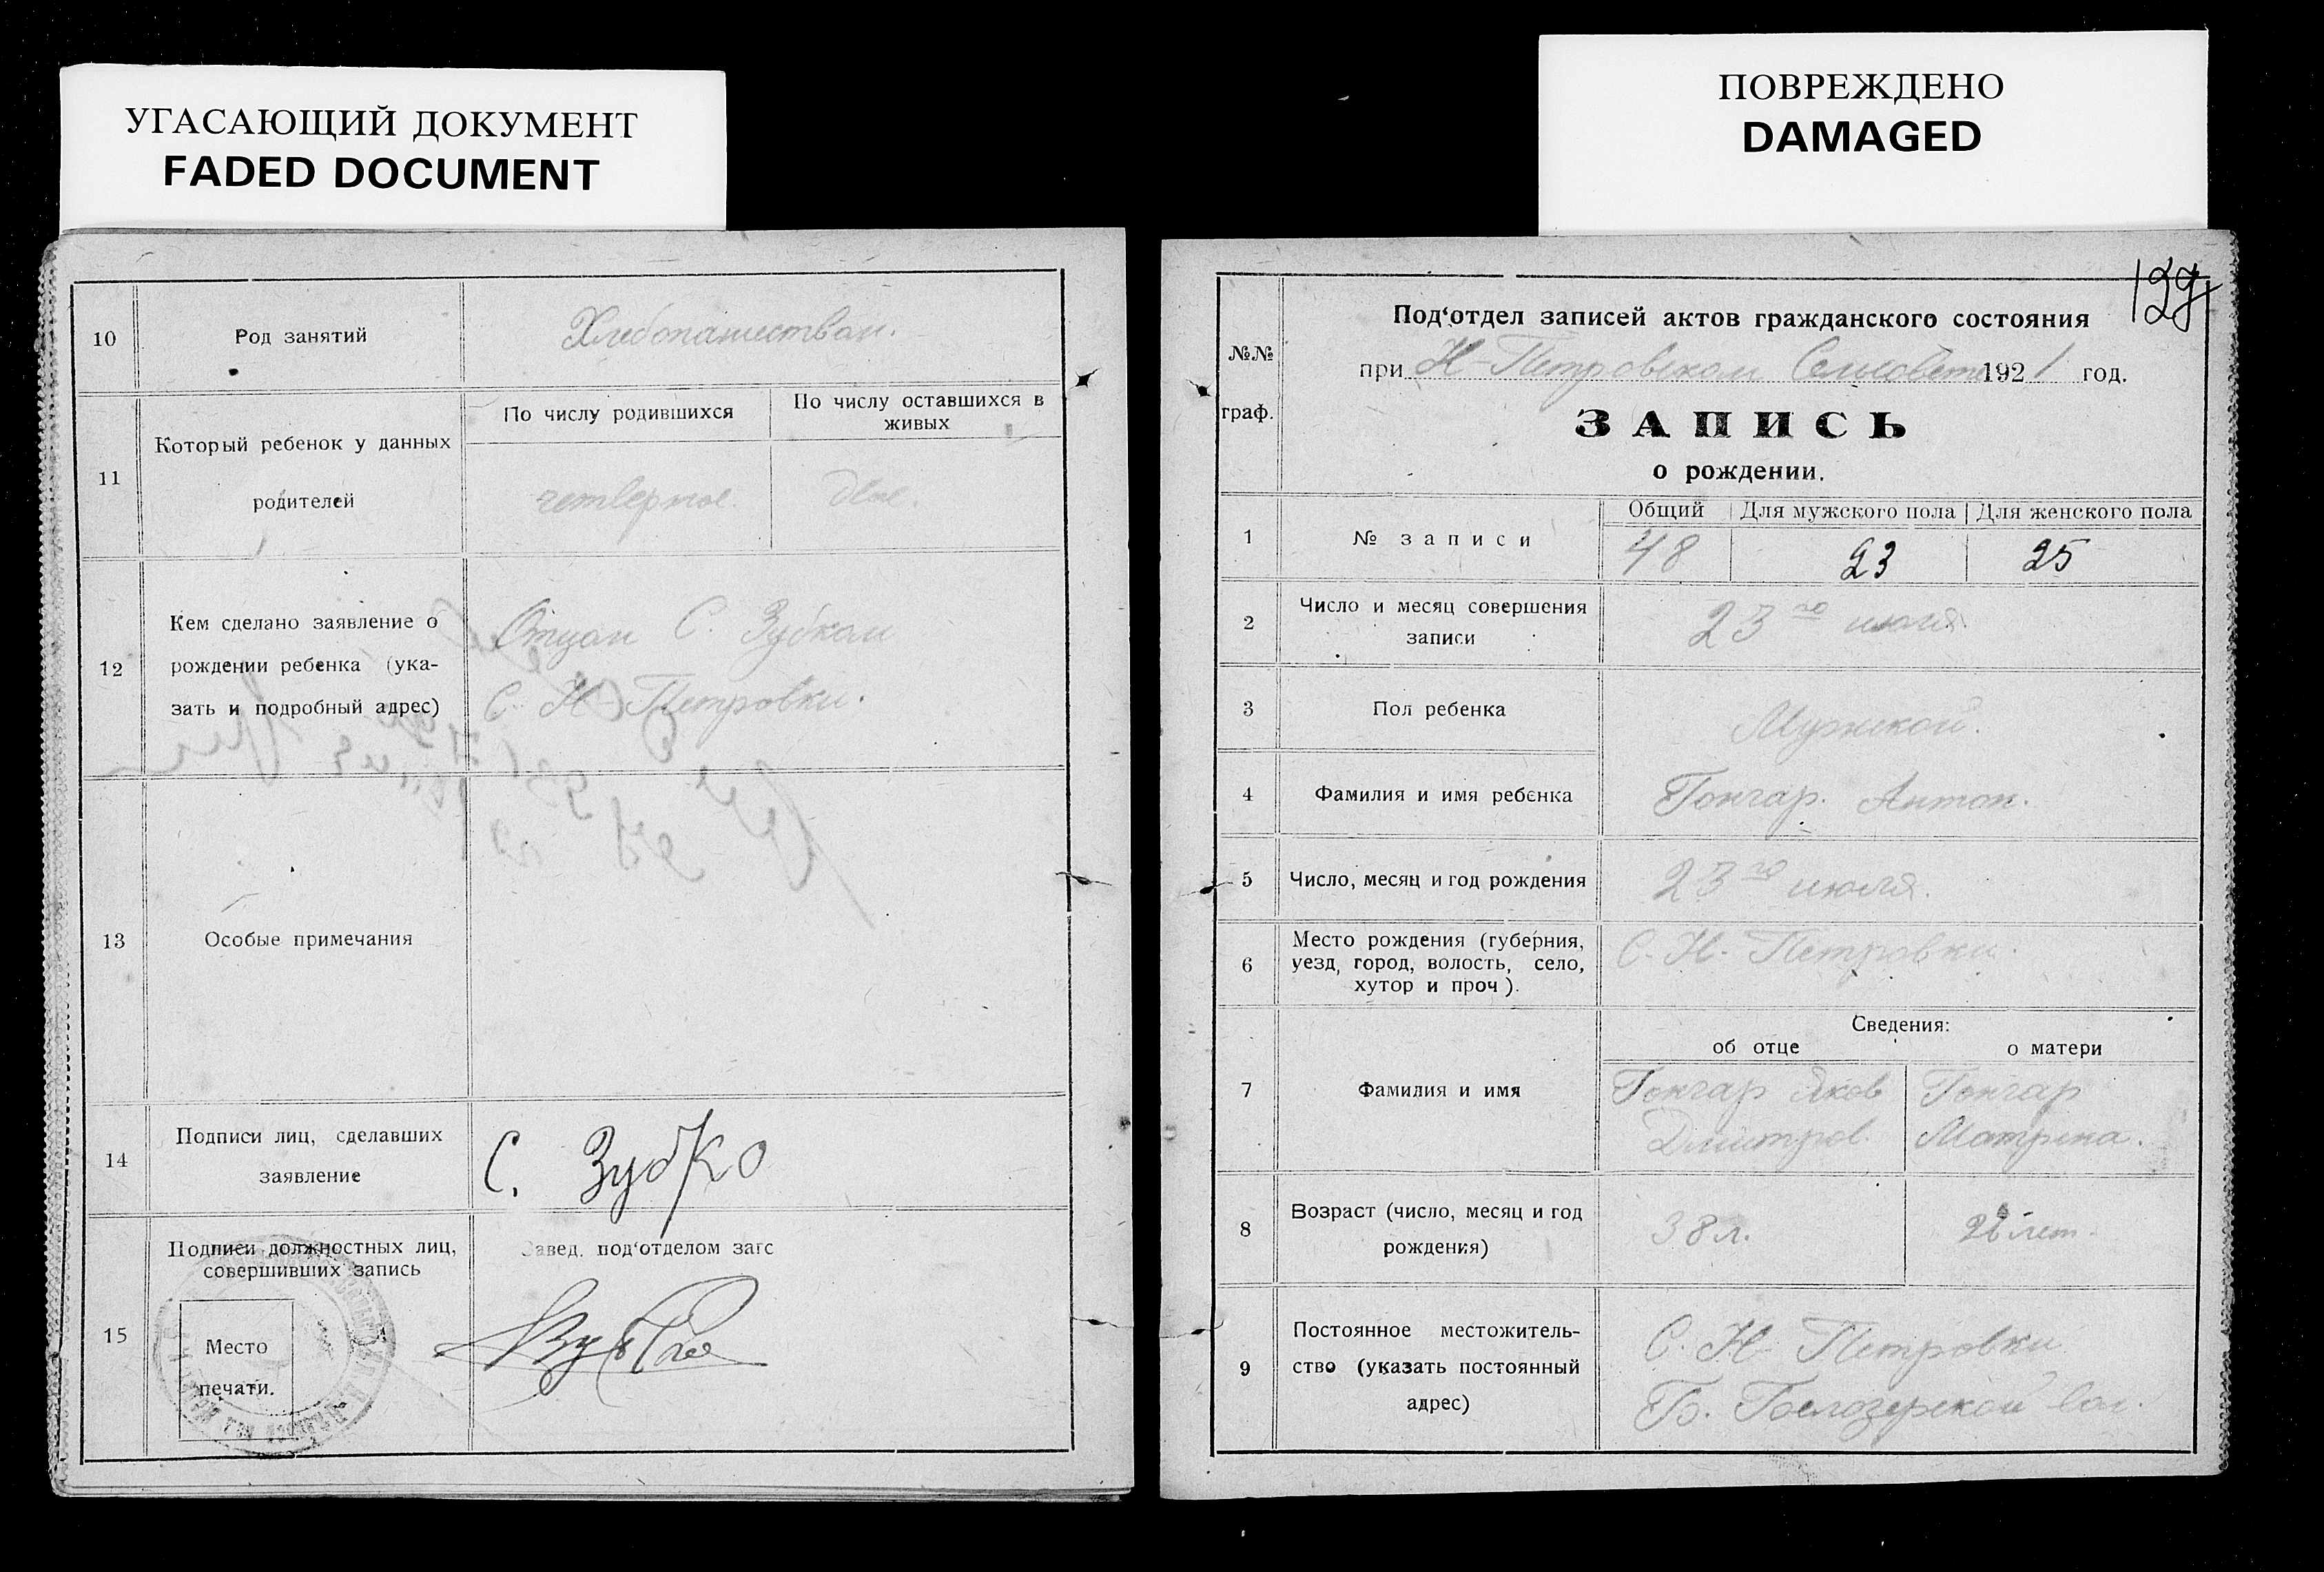 УГАСАЮЩИЙ ДОКУМЕНТ
FADED DOCUMENT
ПОВРЕЖДЕНО
DAMAGED
10
Род занятий
Хлебопашеством.
11
Который ребенок у данных
родителей
По числу родившихся
По числу оставшихся в
живых
четверное.
двое.
12
Кем сделано заявление о
рождении ребенка (ука-
зать и подробный адрес)
Отцом С. Зубком
С. Н-Петровки.
13
Особые примечания
14
Подписи лиц, сделавших
заявление
С. Зубко
15
Подписи должностных лиц,
совершивших запись
Место
печати.
Завед. под‘отделом загс
129
№№
граф.
Под‘отдел записей актов гражданского состояния
при Н-Петровском Сельсовете 1921 год.
ЗАПИСЬ
о рождении.
1
№ записи
Общий
Для мужского пола
Для женского пола
48
23
25
2
Число и месяц совершения
записи
23го июля
3
Пол ребенка
Мужской.
4
Фамилия и имя ребенка
Гончар. Антон.
5
Число, месяц и год рождения
23го июля.
6
Место рождения (губерния,
уезд, город, волость, село,
хутор и проч).
С. Н-Петровки.
7
Фамилия и имя
Сведения:
об отце
о матери
Гончар Яков
Дмитров.
Гончар
Матрена.
8
Возраст (число, месяц и год
рождения)
38 л.
лет.
9
Постоянное местожитель-
ство (указать постоянный
адрес)
С. Н-Петровки
Б. Белозерской вол.